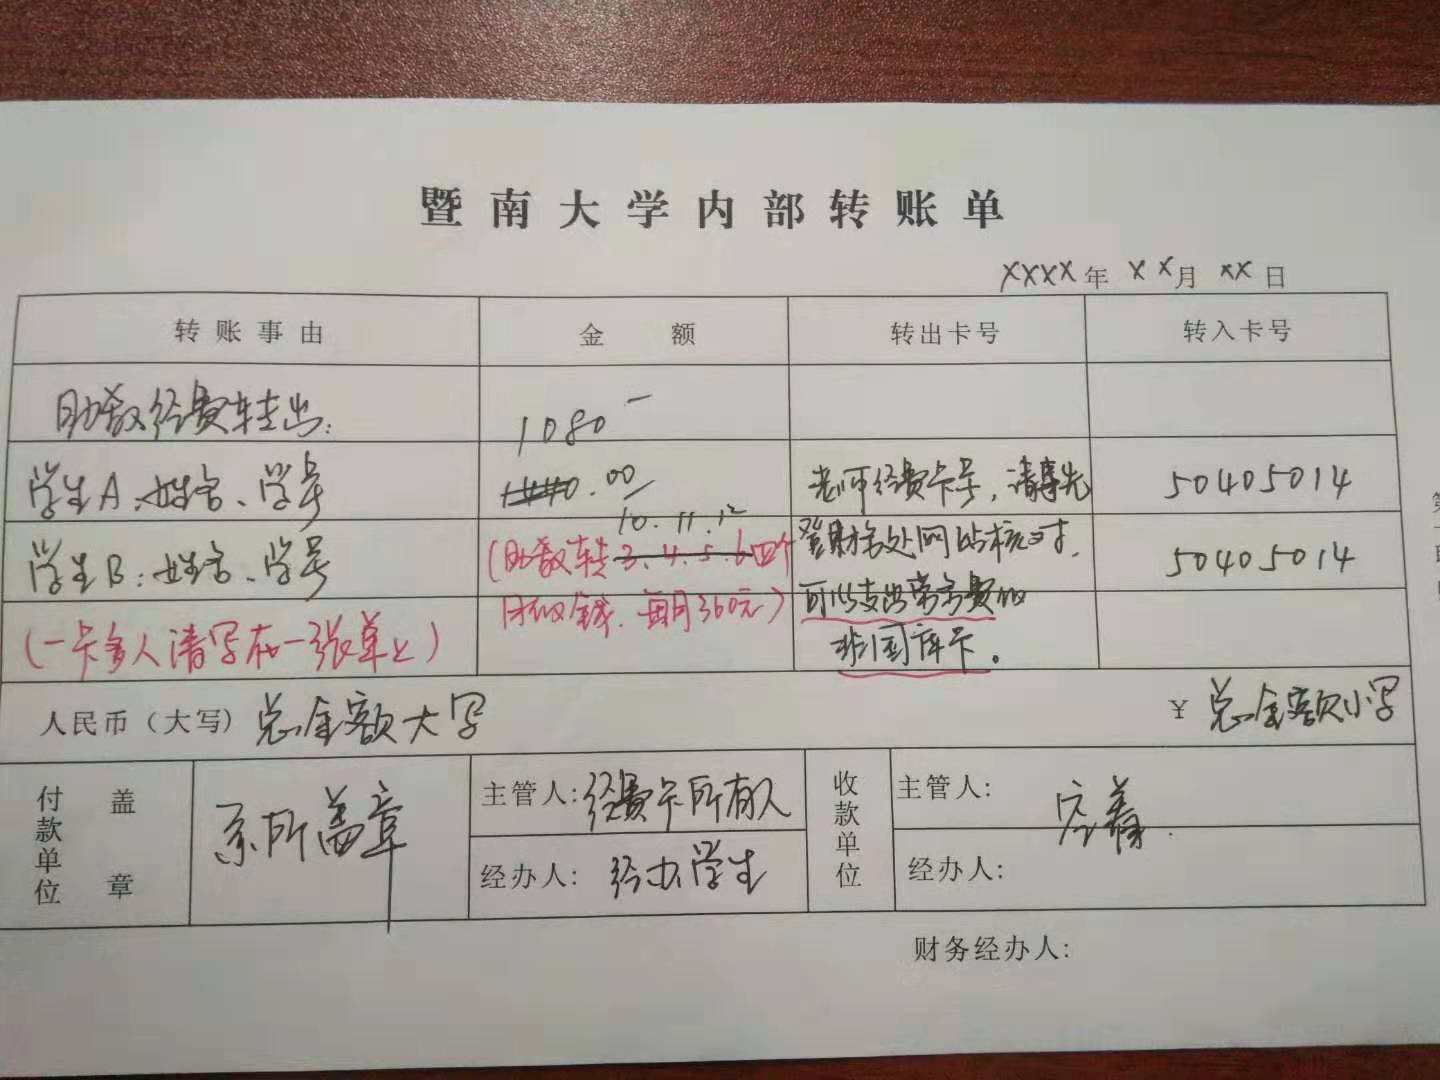 暨南大学内部转账单
XXXX年 XX月 XX日
转账事由 金额 转出卡号 转入卡号
助教经费转出:
1080
学生A、姓名、学号 1440.00 老师经费卡号，请事先 50405014
10.11.12 登财务处网站核对，
学生B:姓名、学号 (助教转3.4.5.6四个 50405014
月的金钱.每月360元) 可以支出劳务费的
(一卡多人请写在一张单上) 非国库卡。
人民币（大写) 总金额大写 ¥ 总金额小写
付款单位 盖章 系所盖章 主管人:经费卡所有人 收款单位 主管人:
经办人: 经办学生 经办人:
财务经办人: